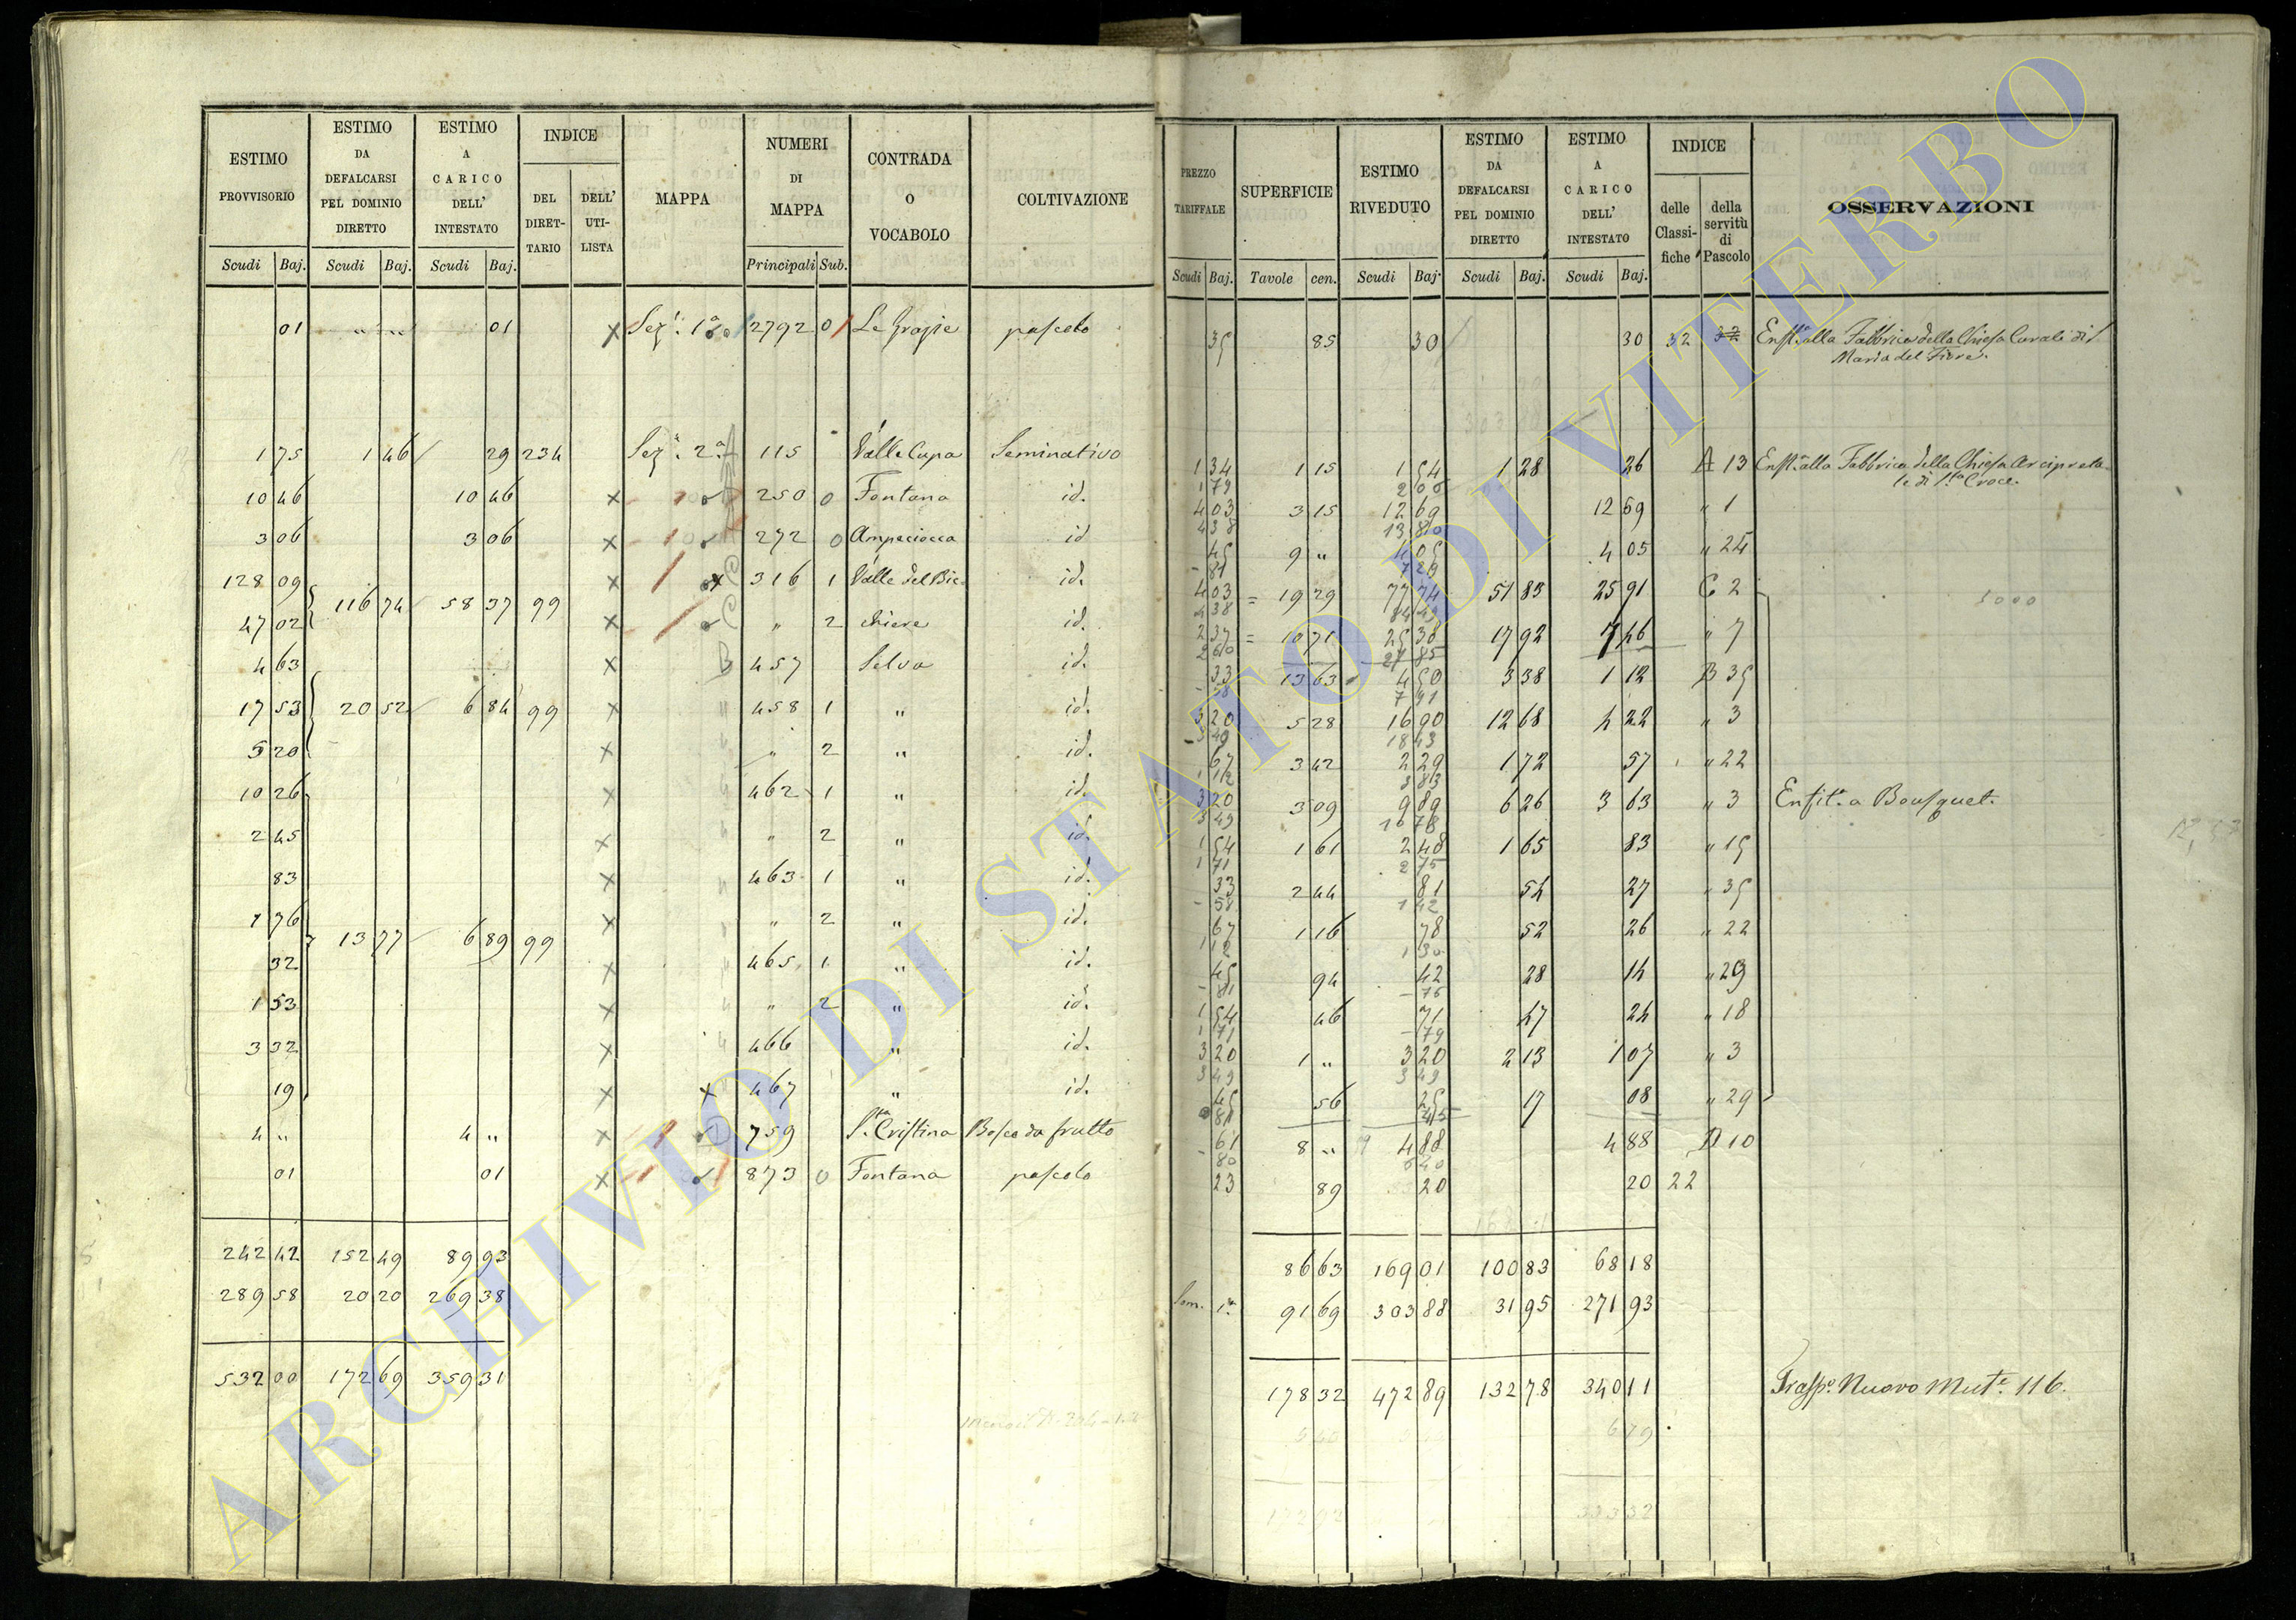 ESTIMO PROVVISORIO | ESTIMO DA DEFALCARSI PEL DOMINIO DIRETTO | ESTIMO A CARICO DELL' INTESTATO | INDICE | MAPPA | NUMERI DI MAPPA | CONTRADA O VOCABOLO | COLTIVAZIONE
DEL DIRETTARIO | DELL' UTILISTA
Scudi | Baj. | Scudi | Baj. | Scudi | Baj. | Principali | Sub.
01 | „ „ | 01 | × | Sez. 1ª | 2792 | 0 | Le Grazie | pascolo
1 75 | 1 46 | 29 | 234 | Sez. 2ª | 115 | Valle Cupa | Seminativo
10 46 | 10 46 | × | 250 | 0 | Fontana | id.
3 06 | 3 06 | × | 272 | 0 | id
128 09 | 116 74 | 58 37 | 99 | × | × | 316 | 1 | Valle del Bic- | id.
47 02 | × | „ | 2 | chiere | id.
4 63 | × | 457 | Selva | id.
17 53 | 20 52 | 6 84 | 99 | × | 458 | 1 | „ | id.
5 20 | × | „ | 2 | „ | id.
10 26 | × | 462 | 1 | „ | id.
2 45 | × | „ | 2 | „ | id.
83 | × | 463 | 1 | „ | id.
1 76 | 13 77 | 6 89 | 99 | × | „ | 2 | „ | id.
32 | × | 465 | 1 | „ | id.
1 53 | × | „ | 2 | „ | id.
3 32 | × | 466 | „ | id.
19 | × | × | 467 | „ | id.
4 „ | 4 „ | × | 759 | S.ta Cristina | Bosco da frutto
01 | 01 | × | 873 | 0 | Fontana | pascolo
242 42 | 152 49 | 89 93
289 58 | 20 20 | 269 38
532 00 | 172 69 | 359 31
PREZZO TARIFFALE | SUPERFICIE | ESTIMO RIVEDUTO | ESTIMO DA DEFALCARSI PEL DOMINIO DIRETTO | ESTIMO A CARICO DELL' INTESTATO | INDICE | OSSERVAZIONI
delle Classifiche | della servitù di Pascolo
Scudi | Baj. | Tavole | cen. | Scudi | Baj. | Scudi | Baj. | Scudi | Baj.
35 | 85 | 30 | 30 | 32 | 32 | Enf.ta alla Fabbrica della Chiesa Curale di S.
Maria del Fiore.
1 34 | 1 15 | 1 54 | 1 28 | 26 | A 13 | Enf.ta alla Fabbrica della Chiesa Arcipreta-
1 79 | 2 06 | le di S.ta Croce.
4 03 | 3 15 | 12 69 | 12 69 | „ 1
4 38 | 13 80
45 | 9 „ | 4 05 | 4 05 | „ 24
81 | 7 29
4 03 | 19 29 | 77 74 | 51 83 | 25 91 | C 2
4 38 | 84 49
2 37 | 10 71 | 25 38 | 17 92 | 7 46 | „ 7
2 60 | 27 85
33 | 13 63 | 4 50 | 3 38 | 1 12 | B 35
58 | 7 91
3 20 | 5 28 | 16 90 | 12 68 | 4 22 | „ 3
3 49 | 18 43
67 | 3 42 | 2 29 | 1 72 | 57 | „ 22
1 12 | 3 83
3 20 | 3 09 | 9 89 | 6 26 | 3 63 | „ 3 | Enfit.a a Bousquet.
3 49 | 10 78
1 54 | 1 61 | 2 48 | 1 65 | 83 | „ 15
1 71 | 2 75
33 | 2 44 | 81 | 54 | 27 | „ 35
58 | 1 42
67 | 1 16 | 78 | 52 | 26 | „ 22
1 12 | 1 30
45 | 94 | 42 | 28 | 14 | „ 29
81 | 76
1 54 | 46 | 71 | 47 | 24 | „ 18
1 71 | 79
3 20 | 1 „ | 3 20 | 2 13 | 1 07 | „ 3
3 49 | 3 49
45 | 56 | 25 | 17 | 08 | „ 29
81 | 45
61 | 8 „ | 4 88 | 4 88 | D 10
80 | 6 40
23 | 89 | 20 | 20 | 22
86 63 | 169 01 | 100 83 | 68 18
Som. 1ª | 91 69 | 303 88 | 31 95 | 271 93
178 32 | 472 89 | 132 78 | 340 11 | Trasp.o Nuovo Mut.e 116.
6 79
172 92 | 333 32
ARCHIVIO DI STATO DI VITERBO